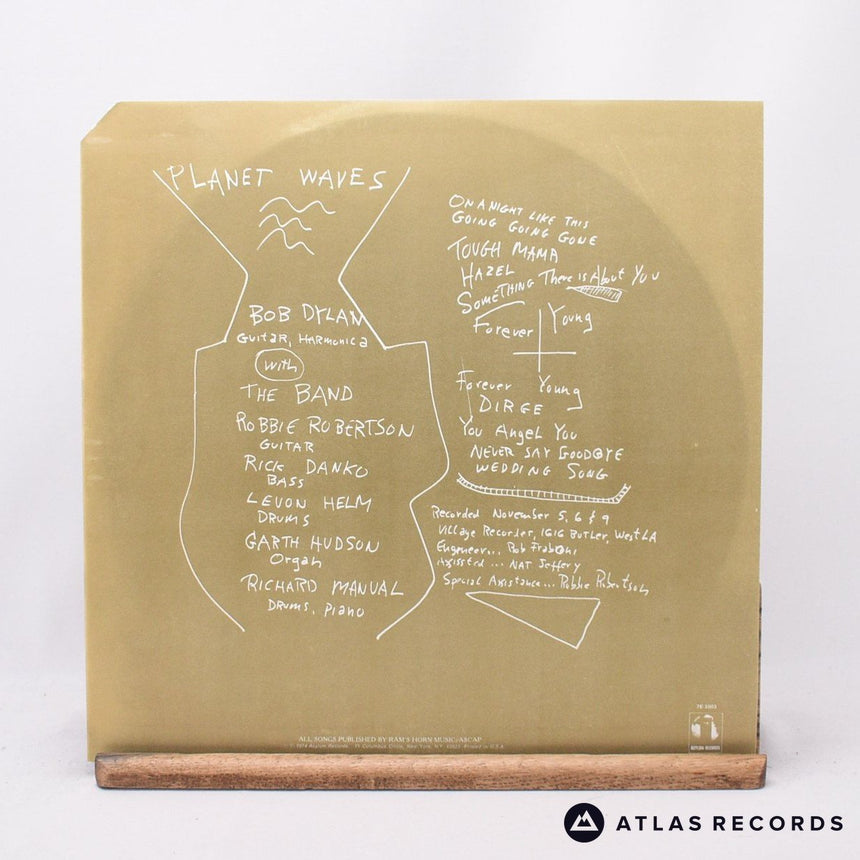 PLANET WAVES
BOB DYLAN
GUITAR, HARMONICA
with
THE BAND
ROBBIE ROBERTSON
GUITAR
RICK DANKO
BASS
LEVON HELM
DRUMS
GARTH HUDSON
Organ
RICHARD MANUAL
DRUMS, PIANO
ON A NIGHT LIKE THIS
GOING GOING GONE
TOUGH MAMA
HAZEL
SOMETHING There is About You
Forever Young
Forever Young
DIRGE
You Angel You
NEVER SAY GOODBYE
WEDDING SONG
Recorded November 5, 6 & 9
Village Recorder, 1616 BUTLER, West LA
Engeneer... Rob Fraboni
Assisted... NAT Jeffery
Special Assistance... Robbie Robertson
ALL SONGS PUBLISHED BY RAM'S HORN MUSIC/ASCAP
© 1974 Asylum Records 15 Columbus Circle, New York, N.Y. 10023 Printed in U.S.A.
7E 1003
ASYLUM RECORDS
ATLAS RECORDS